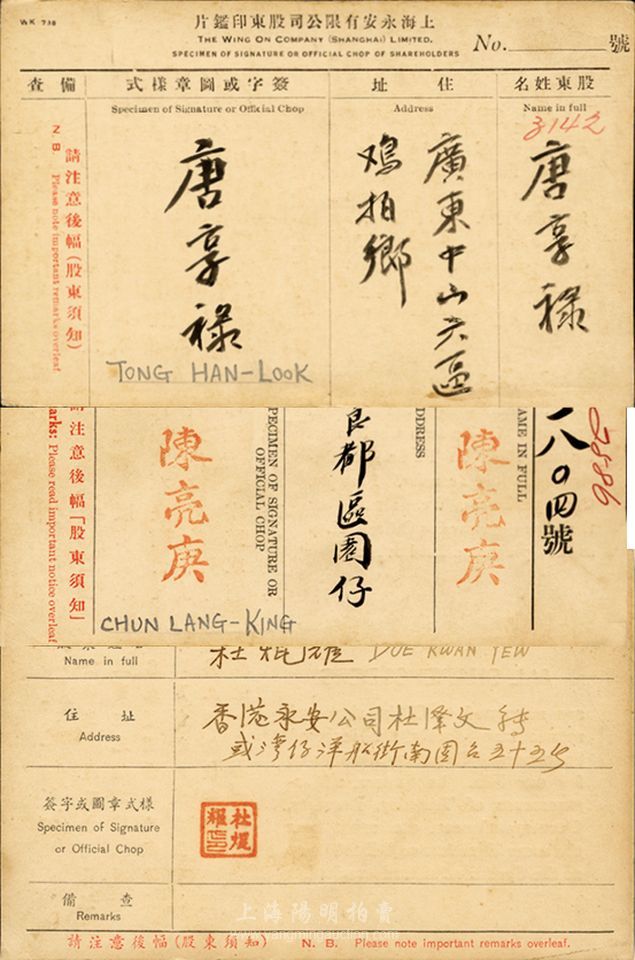 WK 738
上海永安有限公司股東印鑑片
THE WING ON COMPANY (SHANGHAI) LIMITED.
SPECIMEN OF SIGNATURE OR OFFICIAL CHOP OF SHAREHOLDERS
No. 號
股東姓名
Name in full
3142
唐享祿
住址
Address
廣東中山六區
鸡拍鄉
簽字或圖章樣式
Specimen of Signature or Official Chop
唐享祿
TONG HAN-LOOK
備查
請注意後幅(股東須知)
N. B. Please note important remarks overleaf
八〇四號
AME IN FULL
陳亮庚
DDRESS
良都區圂仔
PECIMEN OF SIGNATURE OR
OFFICIAL CHOP
陳亮庚
CHUN LANG-KING
請注意後幅「股東須知」
arks: Please read important notice overleaf
Name in full
杜焜耀 DOE KWAN YEW
住址
Address
香港永安公司杜澤文轉
或灣仔洋船街南固台五十五号
簽字或圖章式樣
Specimen of Signature
or Official Chop
杜焜耀印
備查
Remarks
請注意後幅(股東須知) N. B. Please note important remarks overleaf.
上海陽明拍賣